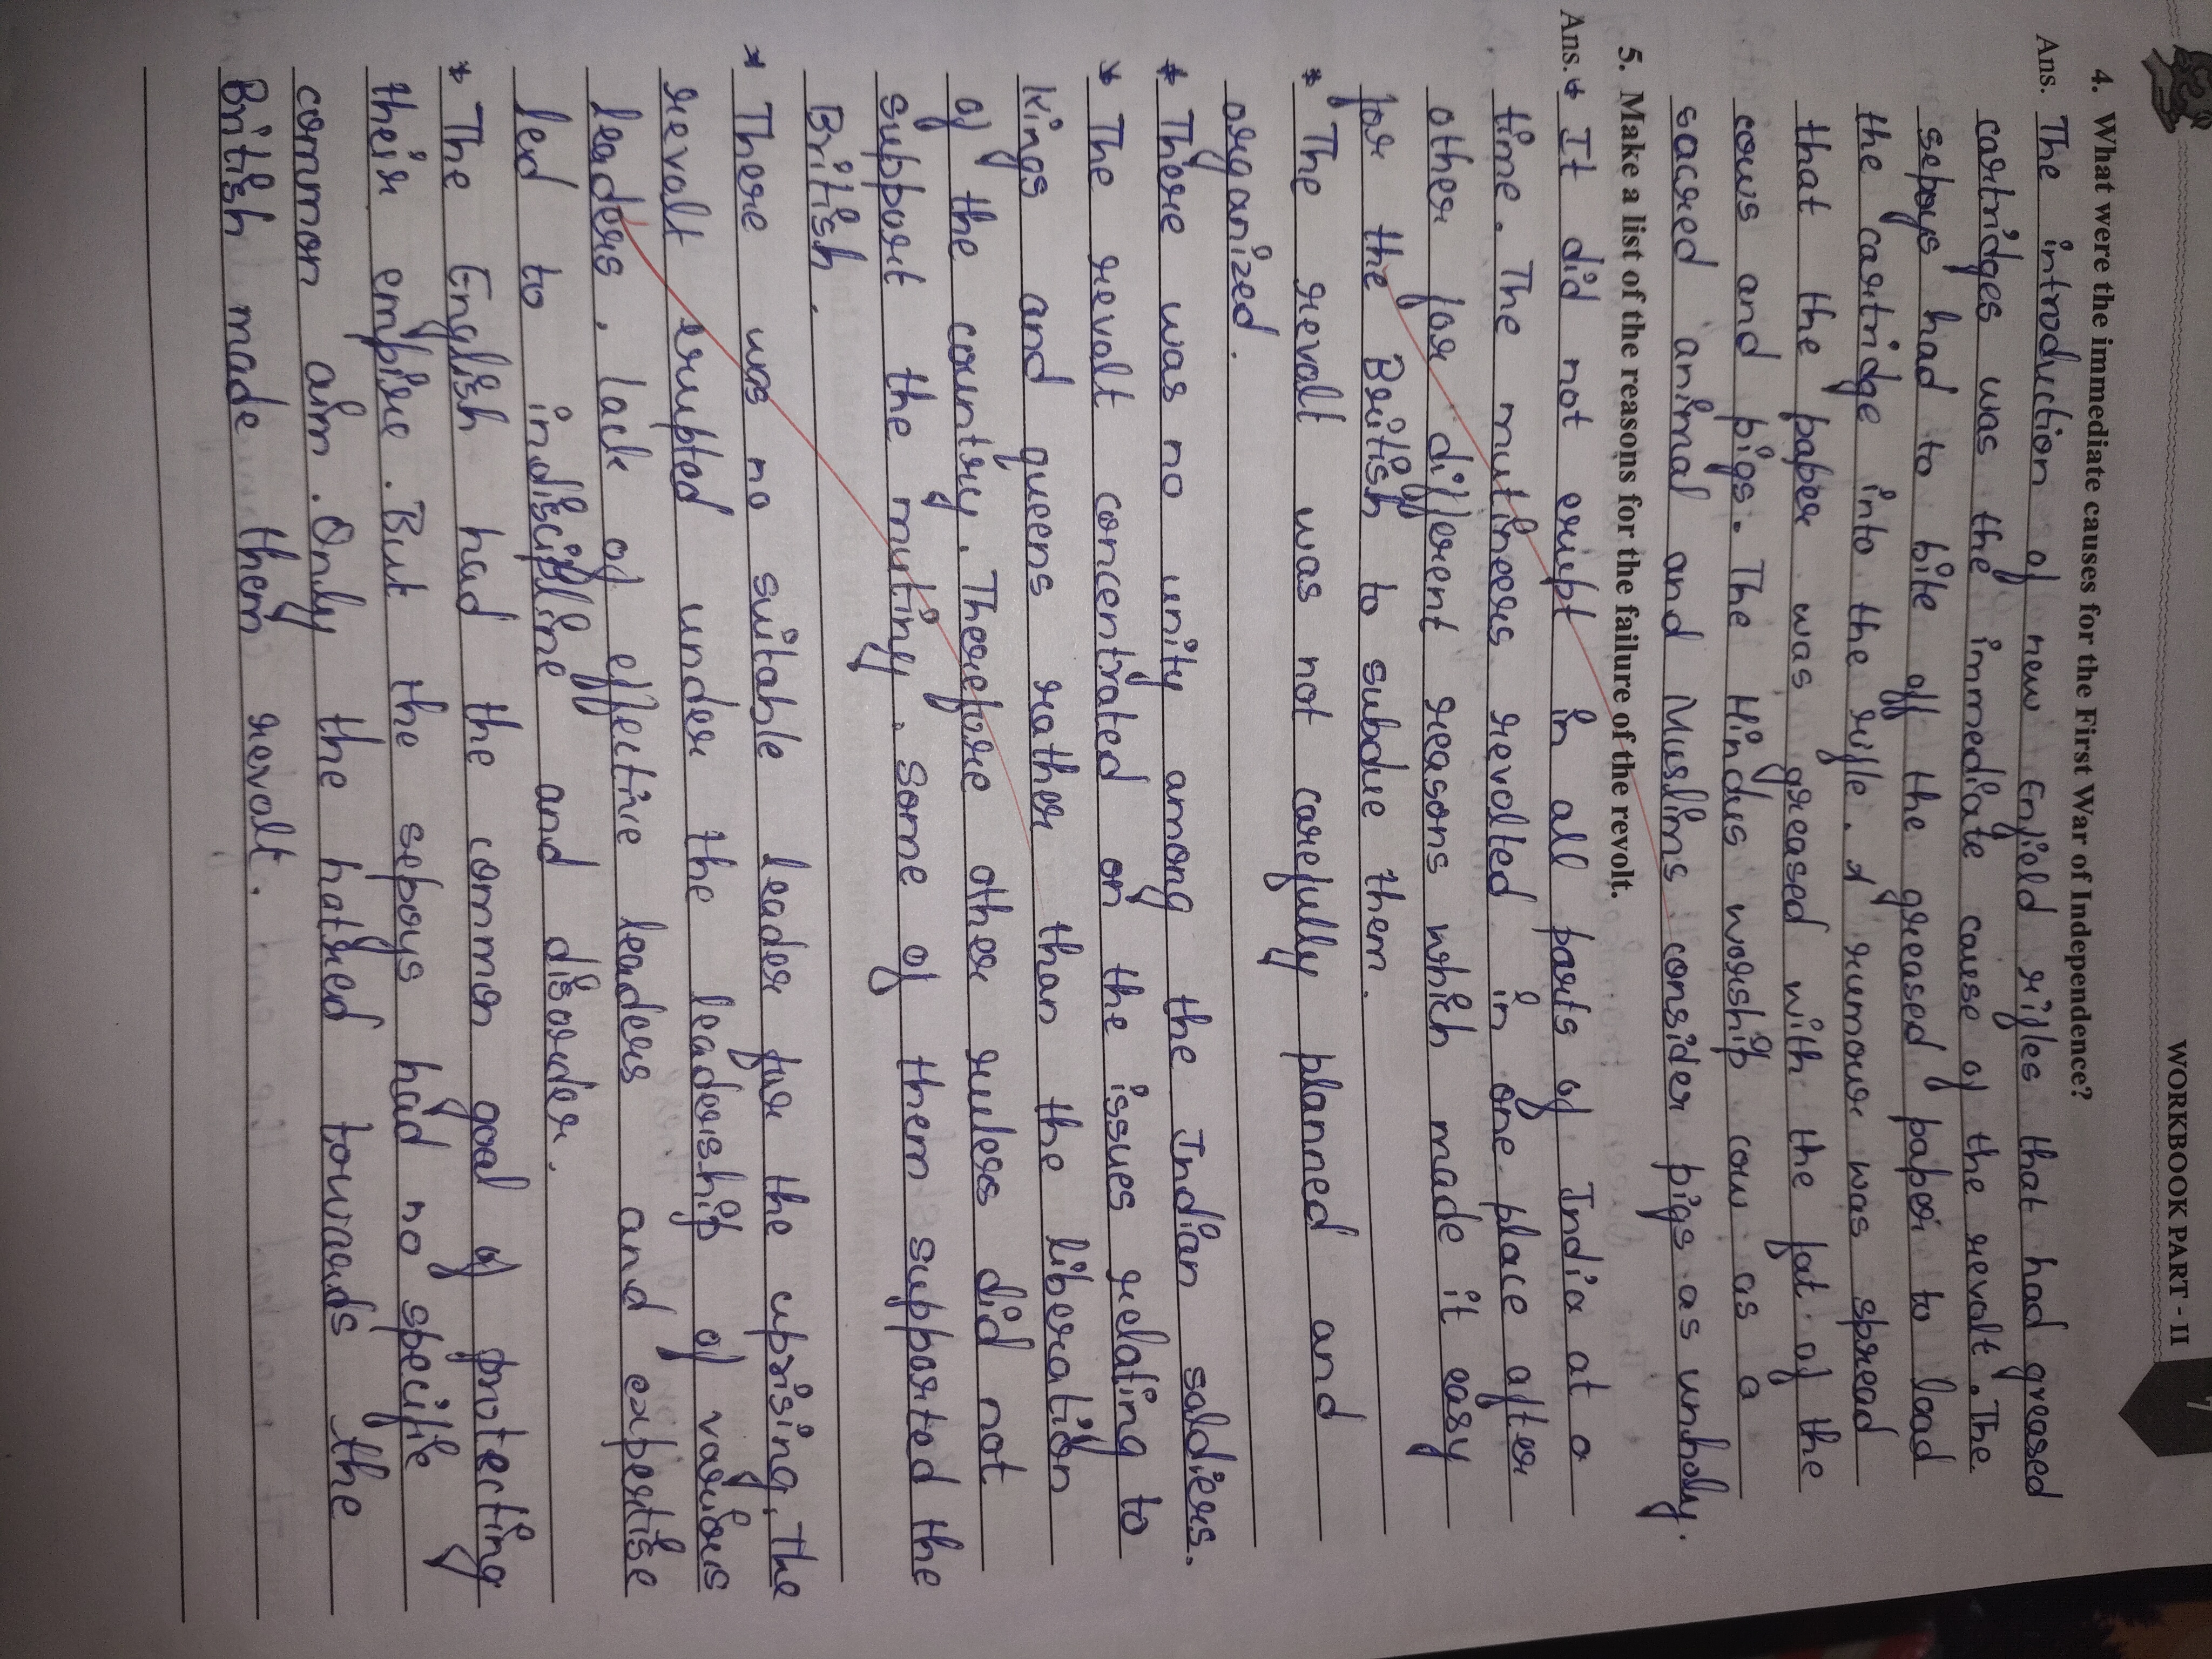 WORKBOOK PART - II
7
4. What were the immediate causes for the First War of Independence?
Ans. The introduction of new Enfield rifles that had greased
cartridges was the immediate cause of the revolt. The
sepoys had to bite off the greased paper to load
the cartridge into the rifle. A rumour was spread
that the paper was greased with the fat of the
cows and pigs. The Hindus worship cow as a
sacred animal and Muslims consider pigs as unholy.
5. Make a list of the reasons for the failure of the revolt.
Ans. * It did not erupt in all parts of India at a
time. The mutineers revolted in one place after
other for different reasons which made it easy
for the British to subdue them.
* The revolt was not carefully planned and
organized.
* There was no unity among the Indian soldiers.
* The revolt concentrated on the issues relating to
kings and queens rather than the liberation
of the country. Therefore other rulers did not
support the mutiny. Some of them supported the
British.
* There was no suitable leader for the uprising. The
revolt erupted under the leadership of various
leaders. lack of effective leaders and expertise
led to indiscipline and disorder.
* The English had the common goal of protecting
their empire. But the sepoys had no specific
common aim. Only the hatred towards the
British made them revolt.